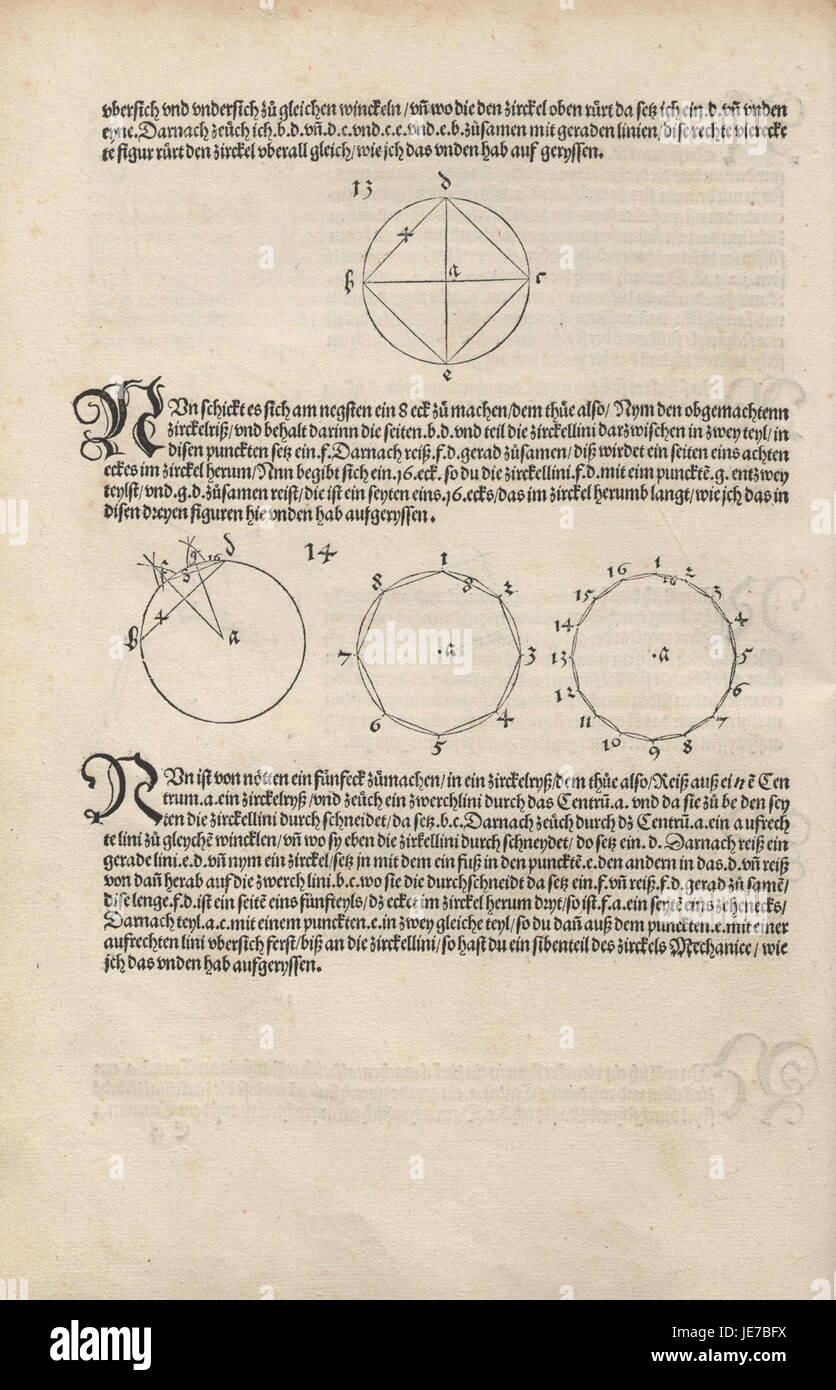 vbersich vnd vndersich zů gleichen winckeln / vñ wo die den zirckel oben rürt da setz ich ein .d. vñ vnden
eyn e. Darnach zeüch ich .b.d. vñ .d.c. vnd .c.e. vnd .e.b. zůsamen mit geraden linien / dise rechte vierecke
te figur rürt den zirckel vberall gleich / wie jch das vnden hab auf geryssen.
13
d
b a c
e
NVn schickt es sich am negsten ein 8 eck zů machen / dem thüe also / Nym den obgemachtenn
zirckelriß / vnd behalt darinn die seiten .b.d. vnd teil die zirckellini darzwischen in zwey teyl / in
disen punckten setz ein .f. Darnach reiß .f.d. gerad zůsamen / diß wirdet ein seiten eins achten
eckes im zirckel herum / Nnn begibt sich ein .16. eck. so du die zirckellini .f.d. mit eim puncktẽ .g. entzwey
teylst / vnd .g.d. zůsamen reist / die ist ein seyten eins .16. ecks / das im zirckel herumb langt / wie jch das in
disen dreyen figuren hie vnden hab aufgeryssen.
14
f 8 g 16 d
b a
1 2 3 4 5 6 7 8
8 .a
1 2 3 4 5 6 7 8 9 10 11 12 13 14 15 16
16 .a
NVn ist von nötten ein fünfeck zůmachen / in ein zirckelryß / dem thüe also / Reiß auß einẽ Cen
trum .a. ein zirckelryß / vnd zeüch ein zwerchlini durch das Centrũ .a. vnd da sie zů be den sey
ten die zirckellini durch schneidet / da setz .b.c. Darnach zeüch durch dz Centrũ .a. ein aufrech
te lini zů gleychẽ wincklen / vñ wo sy eben die zirkellini durch schneydet / do setz ein .d. Darnach reiß ein
gerade lini .e.d. vñ nym ein zirckel / setz jn mit dem ein fuß in den punckte .e. den andern in das .d. vñ reiß
von dañ herab auf die zwerch lini .b.c. wo sie die durchschneidt da setz ein .f. vñ reiß .f.d. gerad zů samẽ /
dise lenge .f.d. ist ein seitẽ eins fünfteyls / dz ecket im zirckel herum dryt / so ist .f.a. ein seytẽ eins zehenecks /
Darnach teyl .a.c. mit einem punckten .e. in zwey gleiche teyl / so du dañ auß dem punckten .e. mit einer
aufrechten lini vbersich ferst / biß an die zirckellini / so hast du ein sibenteil des zirckels Mechanice / wie
jch das vnden hab aufgeryssen.
alamy
alamy
Image ID: JE7BFX
www.alamy.com